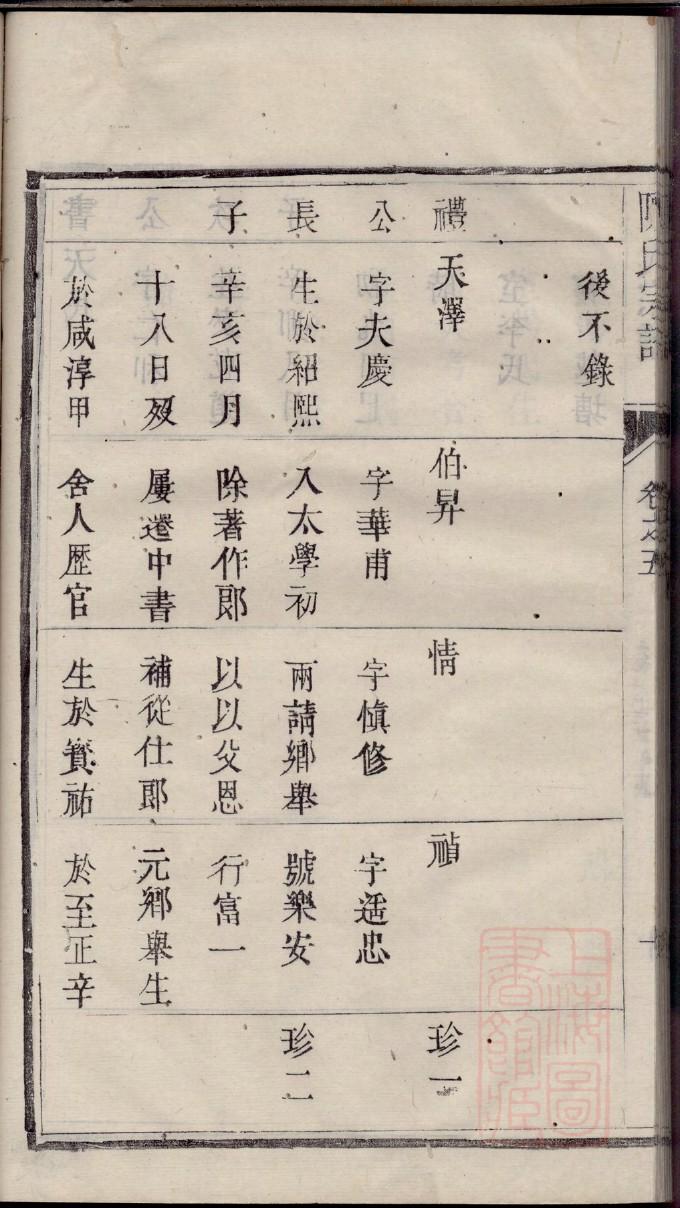 氏宗譜
卷之五
禮
公
長
子
後不錄
天澤
字夫慶
生於紹熙
辛亥四月
十八日歿
於咸淳甲
伯昇
字華甫
入太學初
除著作郎
屢遷中書
舍人歷官
情
字慎修
兩請鄉舉
以以父恩
補從仕郎
生於寶祐
禎
字遥忠
號樂安
行富一
元鄉舉生
於至正辛
珍一
珍二
上海圖
書館藏